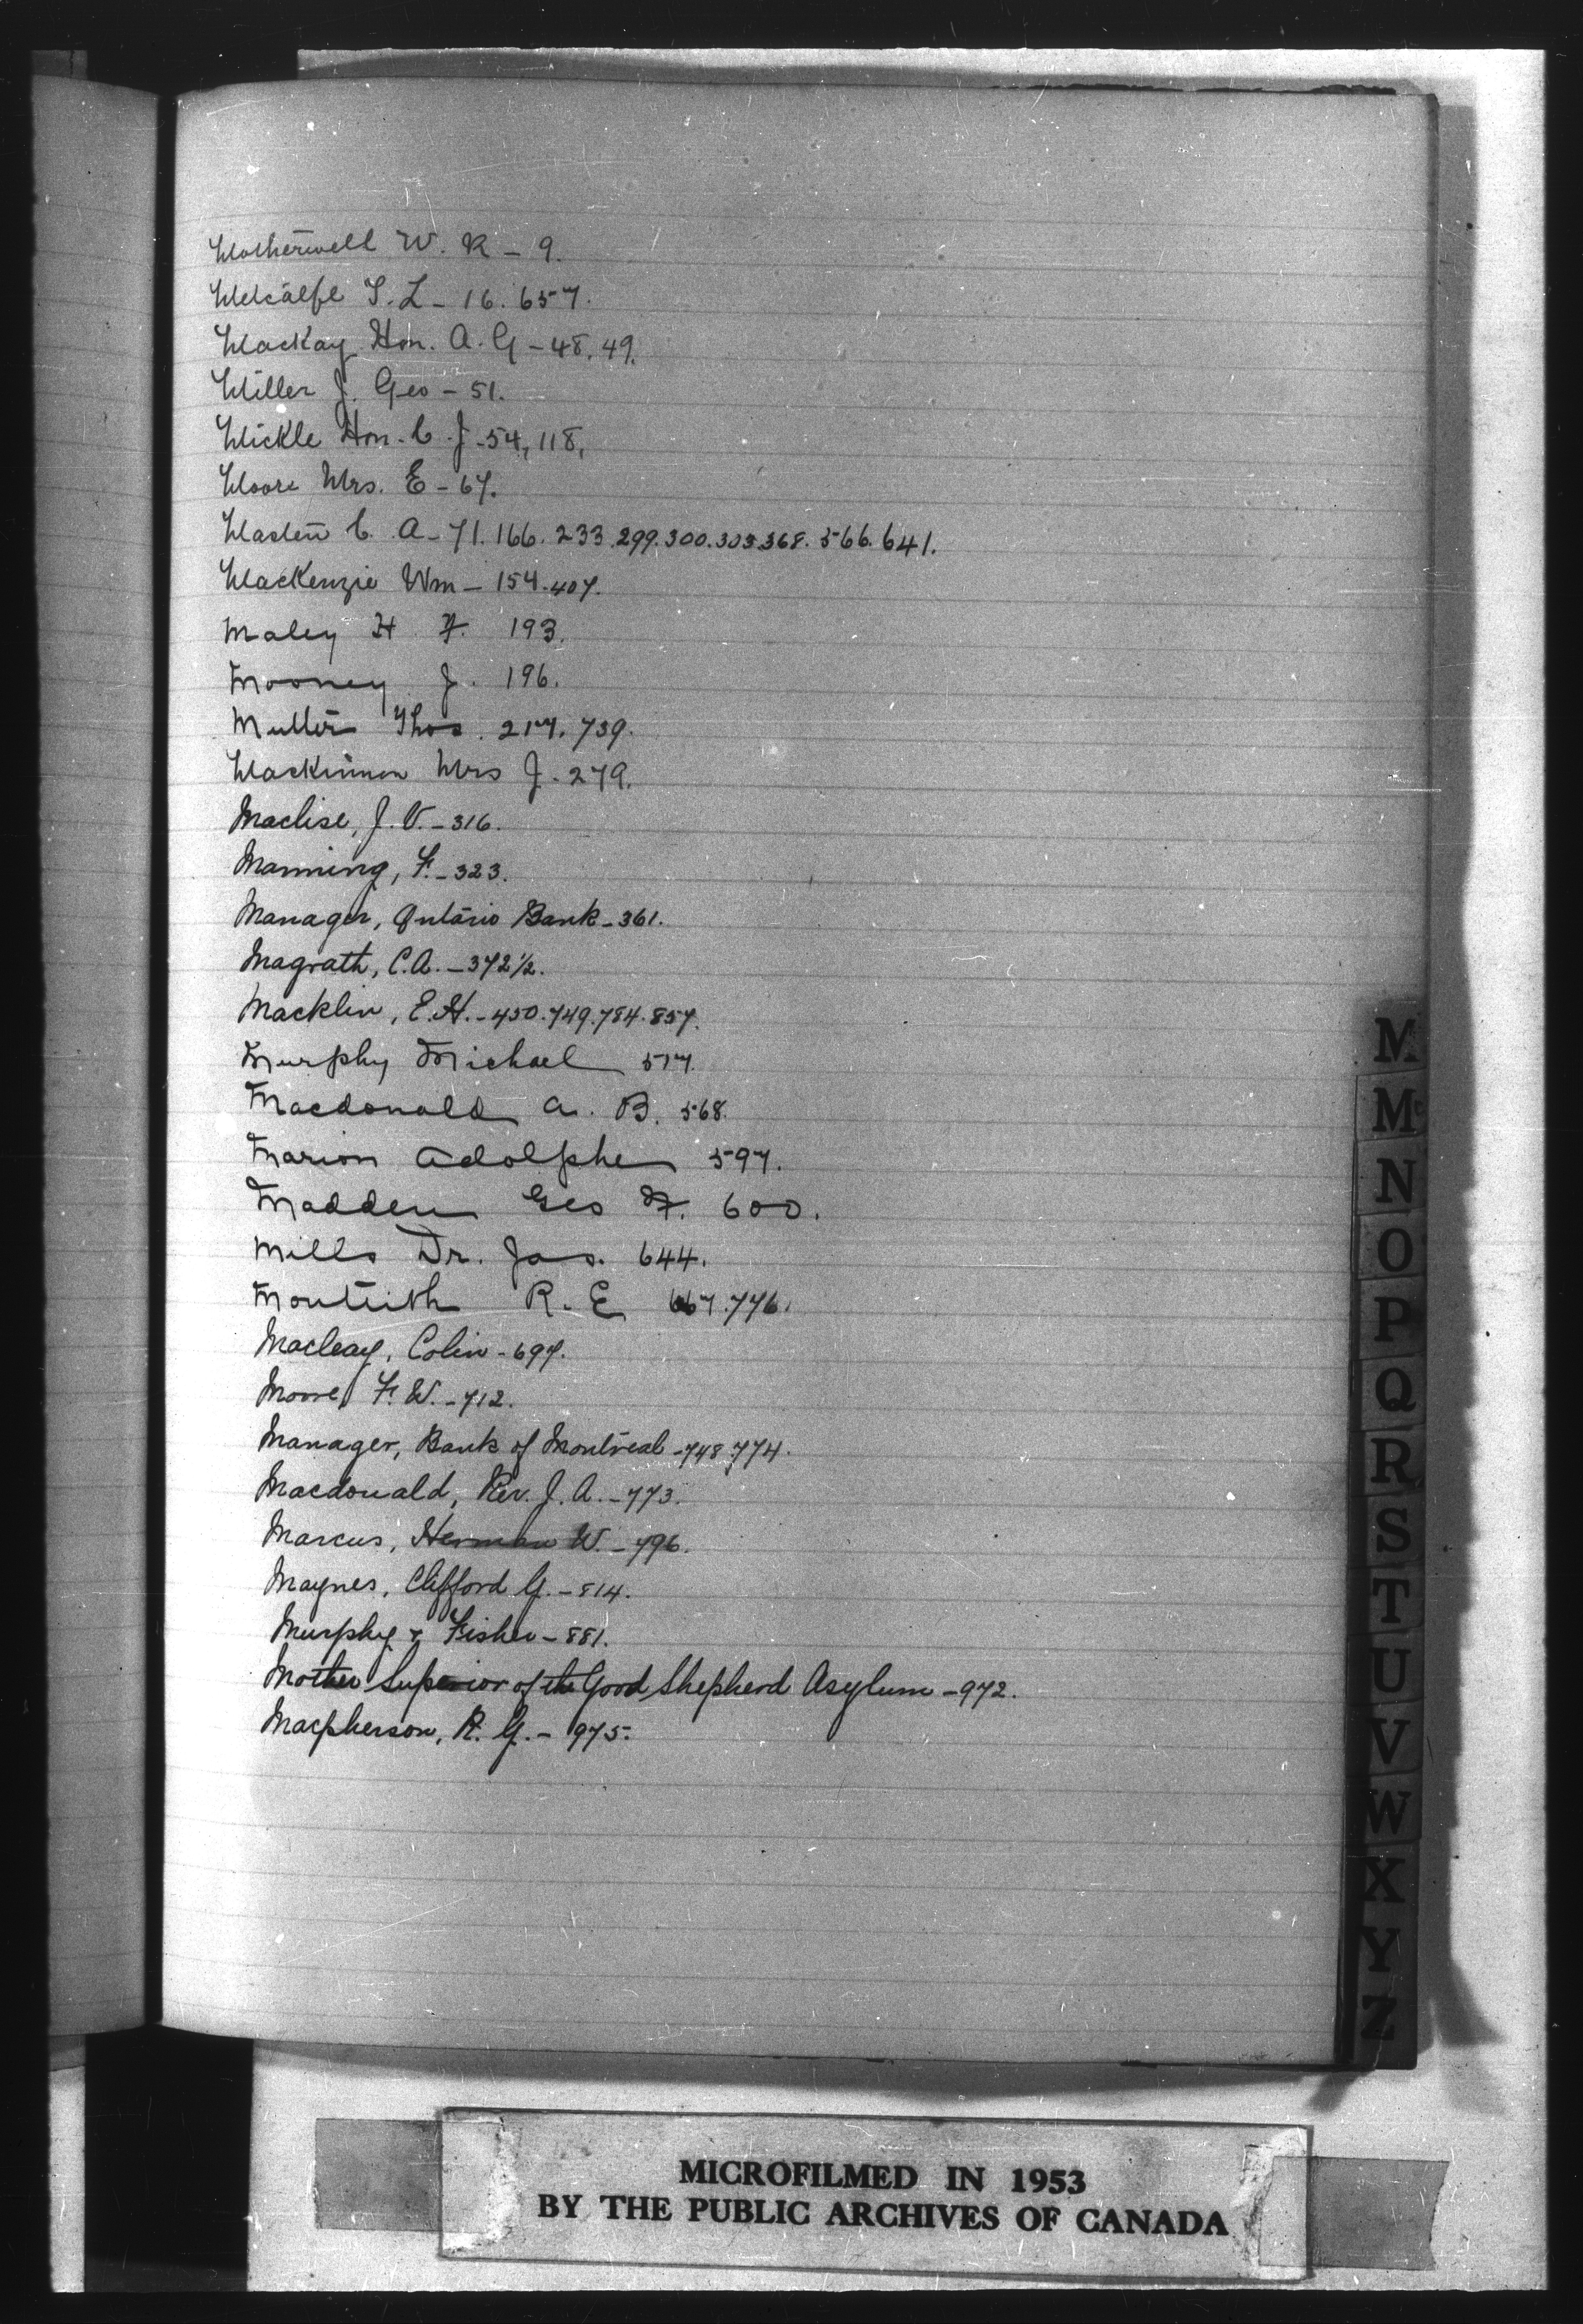 Motherwell W. R - 9.
Metcalfe T. L - 16. 657.
MacKay Hon. A. G - 48, 49.
Miller J. Geo - 51.
Mickle Hon. C. J - 54, 118,
Moore Mrs. E - 67.
Masten C. A - 71. 166. 233. 299. 300. 303. 368. 566. 641.
MacKenzie Wm - 154. 407.
Maley H F. 193.
Mooney J. 196.
Thos. 217. 739.
MacKinnon Mrs J. 279.
Maclise, J. V. - 316.
Manning, F. - 323.
Manager, Ontario Bank - 361.
Magrath, C. A. - 372½.
Macklin, E. H. - 450. 749. 784. 857.
Murphy Michael 517.
Macdonald A. B. 568.
Marion Adolphe 597.
Madden Geo F. 600.
Mills Dr. Jas. 644.
Monteith R. E 667. 776.
Macleay, Colin - 697.
Moore, F. W. - 712.
Manager, Bank of Montreal - 748. 774.
Macdonald, Rev. J. A. - 773.
Marcus, Herman W. - 796.
Maynes, Clifford G. - 814.
Murphy & Fisher - 881.
Mother Superior of the Good Shepherd Asylum - 972.
Macpherson, R. G. - 975.
M
Mc
N
O
P
Q
R
S
T
U
V
W
X
Y
Z
MICROFILMED IN 1953
BY THE PUBLIC ARCHIVES OF CANADA